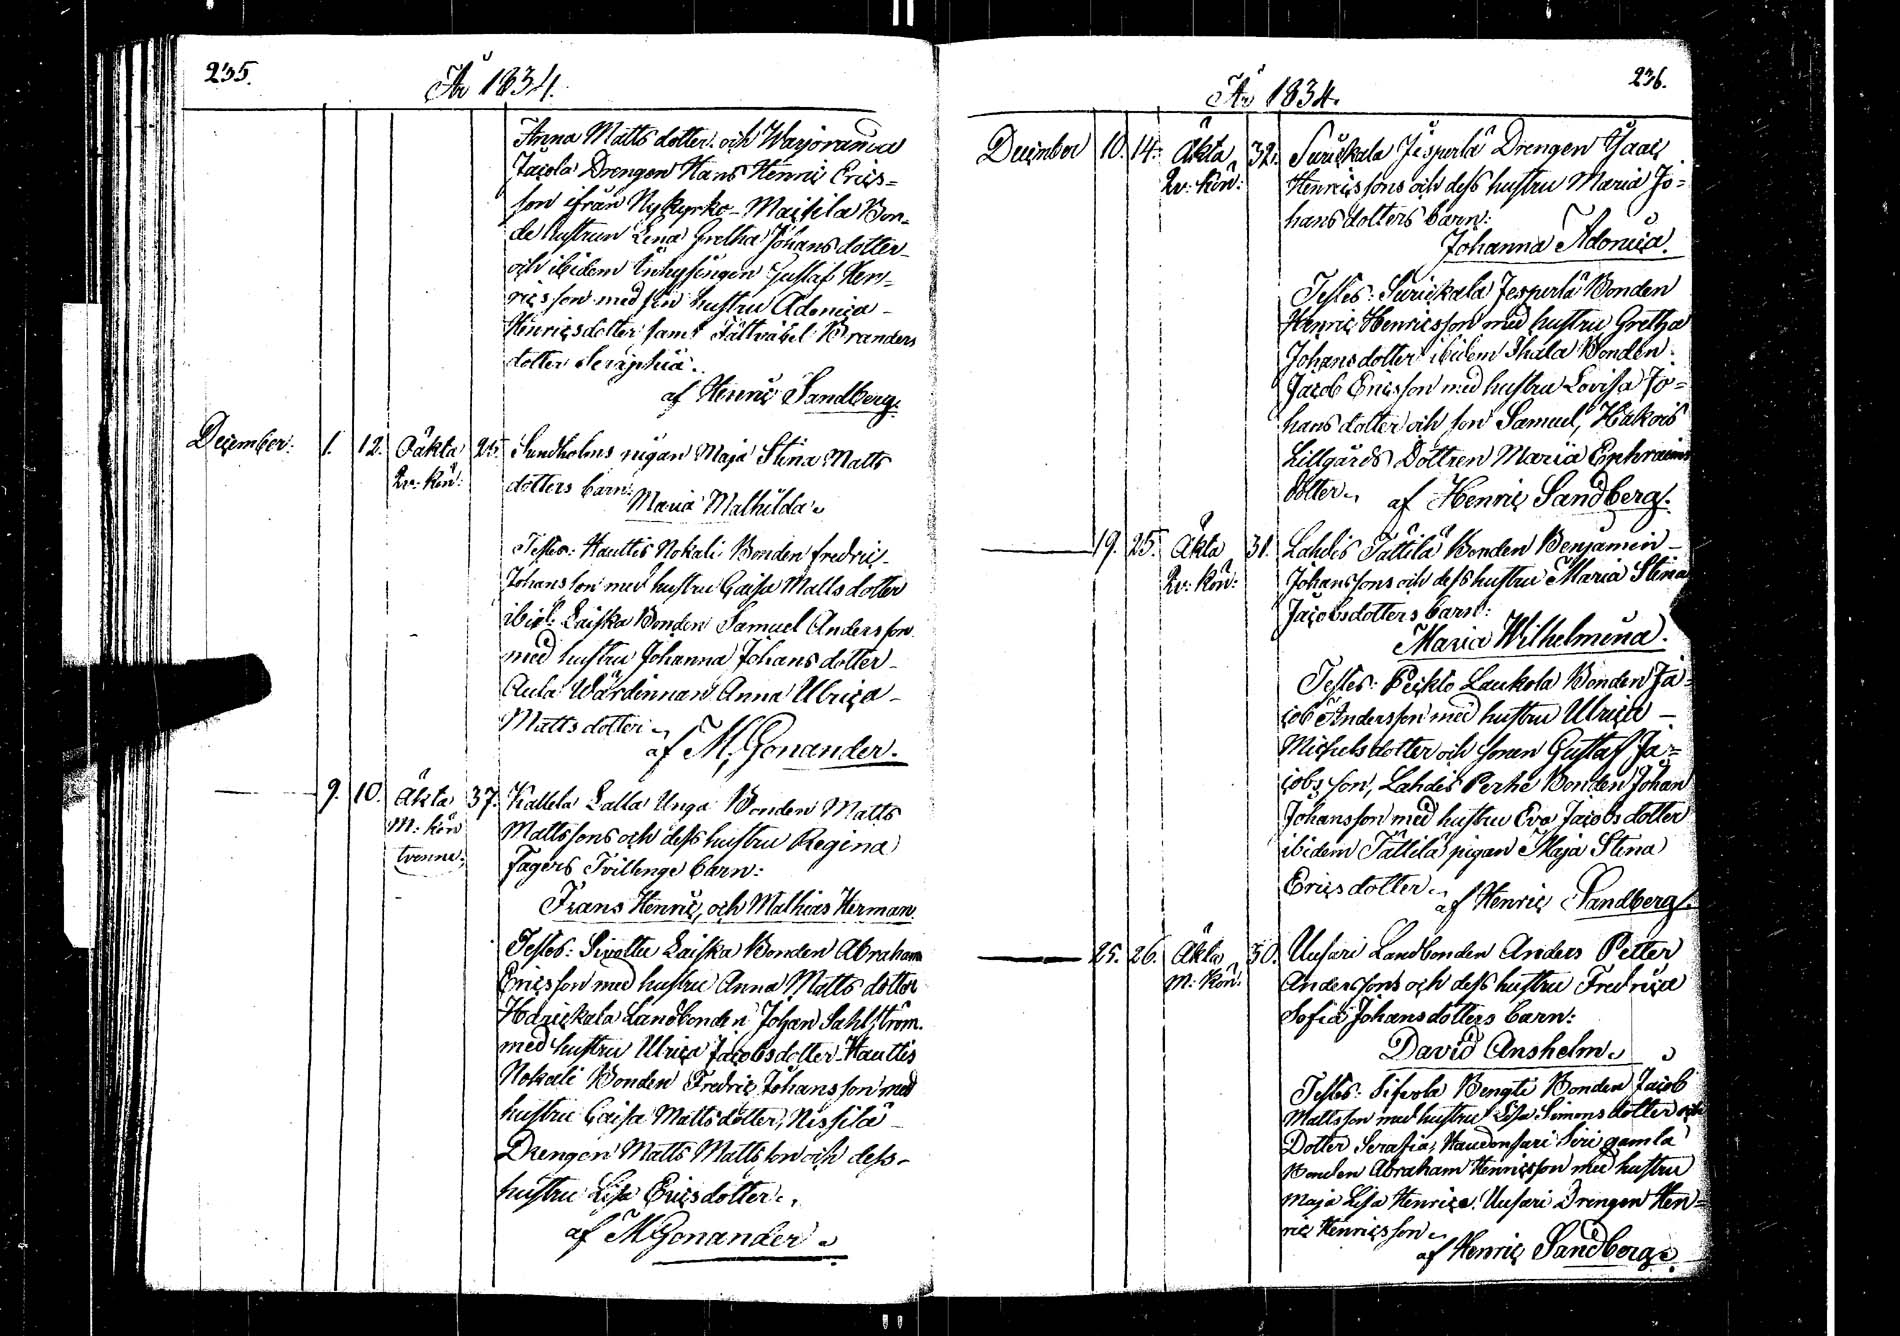 235.
År 1834.
Anna Mattsdotter och Warjoranda
Jacola Drengen Hans Henric Erics-
son ifrån Nykyrko- Maikila Bon-
de hustrun Lena Gretha Johansdotter
och ibidem Inhysingen Gustaf Hen-
ricsson med sin hustru Adamica
Henricsdotter samt Branders
dotter Seraphia.
af Henric Sandberg.
December. 1. 12. Oäkta 25. Sundholms pigan Maja Stina Matts
Qv: kön: dotters barn:
Maria Mathilda.
Testes: Hauttis Nokali Bonden Fredric
Johansson med hustru Caisa Mattsdotter
ibid: Laiska Bonden Samuel Andersson
med hustru Johanna Johansdotter
Aula Wärdinnan Anna Ulrica
Mattsdotter.
af M. Gonander.
9. 10. Äkta 37. Kallela Lalla Unga Bonden Matts
M: kön Mattssons och dess hustru Regina
tvenne. Fagers Tvillinge barn:
Frans Henric, och Mathias Herman.
Testes: Laiska Bonden Abraham
Ericsson med hustru Anna Mattsdotter
Landbonden Johan Sahlström
med hustru Ulrica Jacobsdotter Hauttis
Nokali Bonden Fredric Johansson med
hustru Caisa Mattsdotter, Nissilä
Drengen Matts Mattsson och dess
hustru Lisa Ericsdotter.
af M Gonander.
236.
År 1834.
December 10. 14. Äkta 32. Surickala Jesperlä Drengen Isaac
Qv: kön: Henricssons och dess hustru Maria Jo-
hansdotters barn:
Johanna Adamica.
Testes: Surickala Jesperlä Bonden
Henric Henricsson med hustru Gretha
Johansdotter ibidem Ihala Bonden
Jacob Ericsson med hustru Lovisa Jo-
hansdotter och son Samuel, Hakois
Lillgårds Dottren Maria Ephraims
dotter. af Henric Sandberg.
19. 25. Äkta 31. Lahdis Tättilä Bonden Benjamin
Qv: kön: Johanssons och dess hustru Maria Stina
Jacobsdotters barn:
Maria Wilhelmina.
Testes: Peickto Laukola Bonden Ja-
cob Andersson med hustru Ulrica
Michelsdotter och sonen Gustaf Ja-
cobsson, Lahdis Perhe Bonden Johan
Johansson med hustru Eva Jacobsdotter
ibidem Tättilä pigan Maja Stina
Ericsdotter.
af Henric Sandberg.
25. 26. Äkta 30. Uusari Landbonden Anders Petter
M: kön: Anderssons och dess hustru Fredrica
Sofia Johansdotters barn:
David Anshelm.
Testes: Sifvola Bengti Bonden Jacob
Mattsson med hustru Lisa Simonsdotter och
Dotter Serafia, Haudonsari Siri gamla
Bonden Abraham Henricsson med hustru
Maja Lisa Henrics. Uusari Drengen Hen-
ric Henricsson.
af Henric Sandberg.